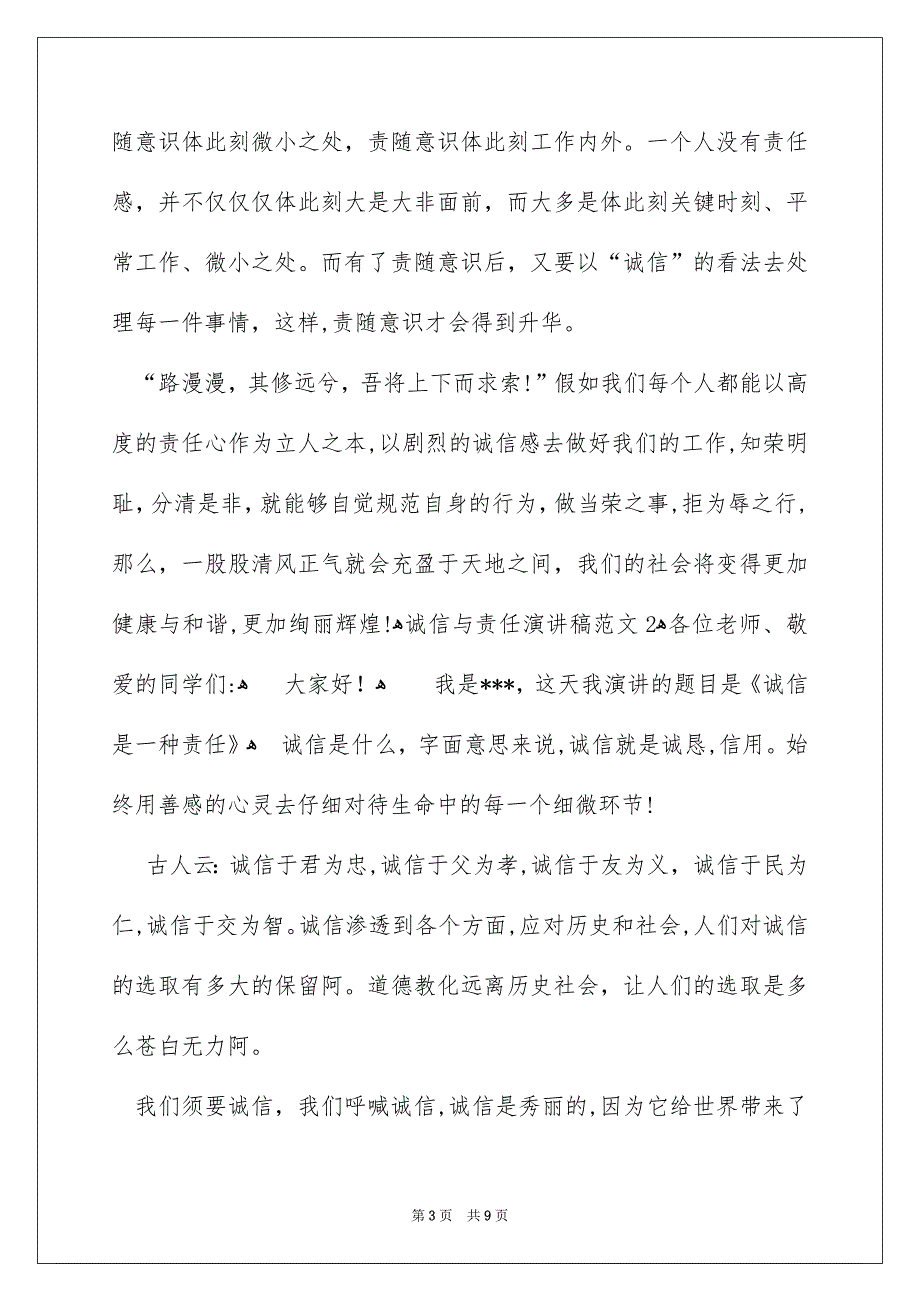 随意识体此刻微小之处，责随意识体此刻工作内外。一个人没有责任
感，并不仅仅仅体此刻大是大非面前，而大多是体此刻关键时刻、平
常工作、微小之处。而有了责随意识后，又要以“诚信”的看法去处
理每一件事情，这样,责随意识才会得到升华。
“路漫漫，其修远兮，吾将上下而求索!”假如我们每个人都能以高
度的责任心作为立人之本,以剧烈的诚信感去做好我们的工作,知荣明
耻,分清是非,就能够自觉规范自身的行为,做当荣之事,拒为辱之行,
那么，一股股清风正气就会充盈于天地之间，我们的社会将变得更加
健康与和谐,更加绚丽辉煌!ﻫ诚信与责任演讲稿范文2ﻫ各位老师、敬
爱的同学们:ﻫ 大家好！ﻫ 我是***，这天我演讲的题目是《诚信
是一种责任》ﻫ 诚信是什么，字面意思来说,诚信就是诚恳,信用。始
终用善感的心灵去仔细对待生命中的每一个细微环节!
古人云：诚信于君为忠,诚信于父为孝,诚信于友为义，诚信于民为
仁,诚信于交为智。诚信渗透到各个方面,应对历史和社会,人们对诚信
的选取有多大的保留阿。道德教化远离历史社会，让人们的选取是多
么苍白无力阿。
我们须要诚信，我们呼喊诚信,诚信是秀丽的,因为它给世界带来了
第3页 共9页